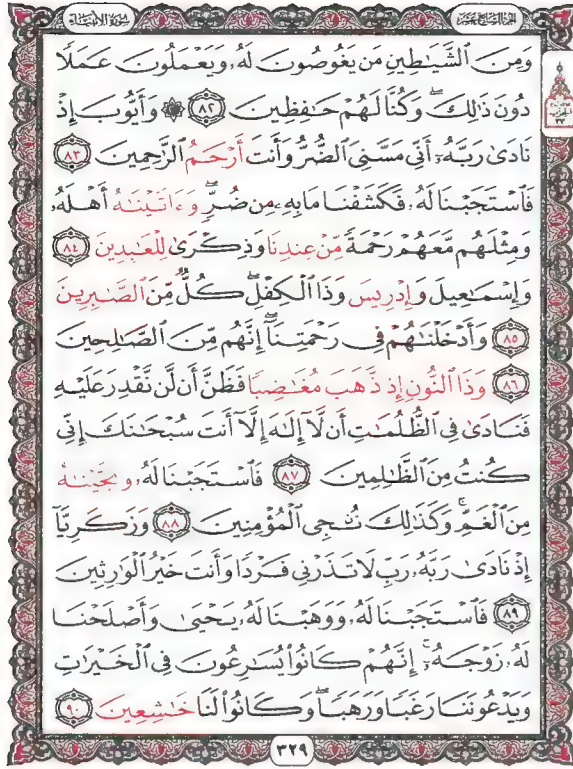 سُورَةُ الأَنْبِيَاءِ
الجُزْءُ السَّابِعَ عَشَرَ
وَمِنَ ٱلشَّيَٰطِينِ مَن يَغُوصُونَ لَهُۥ وَيَعْمَلُونَ عَمَلًا
دُونَ ذَٰلِكَ ۖ وَكُنَّا لَهُمْ حَٰفِظِينَ ٨٢ ۞ وَأَيُّوبَ إِذْ
نَادَىٰ رَبَّهُۥٓ أَنِّى مَسَّنِىَ ٱلضُّرُّ وَأَنتَ أَرْحَمُ ٱلرَّٰحِمِينَ ٨٣
فَٱسْتَجَبْنَا لَهُۥ فَكَشَفْنَا مَا بِهِۦ مِن ضُرٍّ ۖ وَءَاتَيْنَٰهُ أَهْلَهُۥ
وَمِثْلَهُم مَّعَهُمْ رَحْمَةً مِّنْ عِندِنَا وَذِكْرَىٰ لِلْعَٰبِدِينَ ٨٤
وَإِسْمَٰعِيلَ وَإِدْرِيسَ وَذَا ٱلْكِفْلِ ۖ كُلٌّ مِّنَ ٱلصَّٰبِرِينَ
٨٥ وَأَدْخَلْنَٰهُمْ فِى رَحْمَتِنَآ ۖ إِنَّهُم مِّنَ ٱلصَّٰلِحِينَ
٨٦ وَذَا ٱلنُّونِ إِذ ذَّهَبَ مُغَٰضِبًا فَظَنَّ أَن لَّن نَّقْدِرَ عَلَيْهِ
فَنَادَىٰ فِى ٱلظُّلُمَٰتِ أَن لَّآ إِلَٰهَ إِلَّآ أَنتَ سُبْحَٰنَكَ إِنِّى
كُنتُ مِنَ ٱلظَّٰلِمِينَ ٨٧ فَٱسْتَجَبْنَا لَهُۥ وَنَجَّيْنَٰهُ
مِنَ ٱلْغَمِّ ۚ وَكَذَٰلِكَ نُـۨجِى ٱلْمُؤْمِنِينَ ٨٨ وَزَكَرِيَّآ
إِذْ نَادَىٰ رَبَّهُۥ رَبِّ لَا تَذَرْنِى فَرْدًا وَأَنتَ خَيْرُ ٱلْوَٰرِثِينَ
٨٩ فَٱسْتَجَبْنَا لَهُۥ وَوَهَبْنَا لَهُۥ يَحْيَىٰ وَأَصْلَحْنَا
لَهُۥ زَوْجَهُۥٓ ۚ إِنَّهُمْ كَانُوا۟ يُسَٰرِعُونَ فِى ٱلْخَيْرَٰتِ
وَيَدْعُونَنَا رَغَبًا وَرَهَبًا ۖ وَكَانُوا۟ لَنَا خَٰشِعِينَ ٩٠
٣٢٩